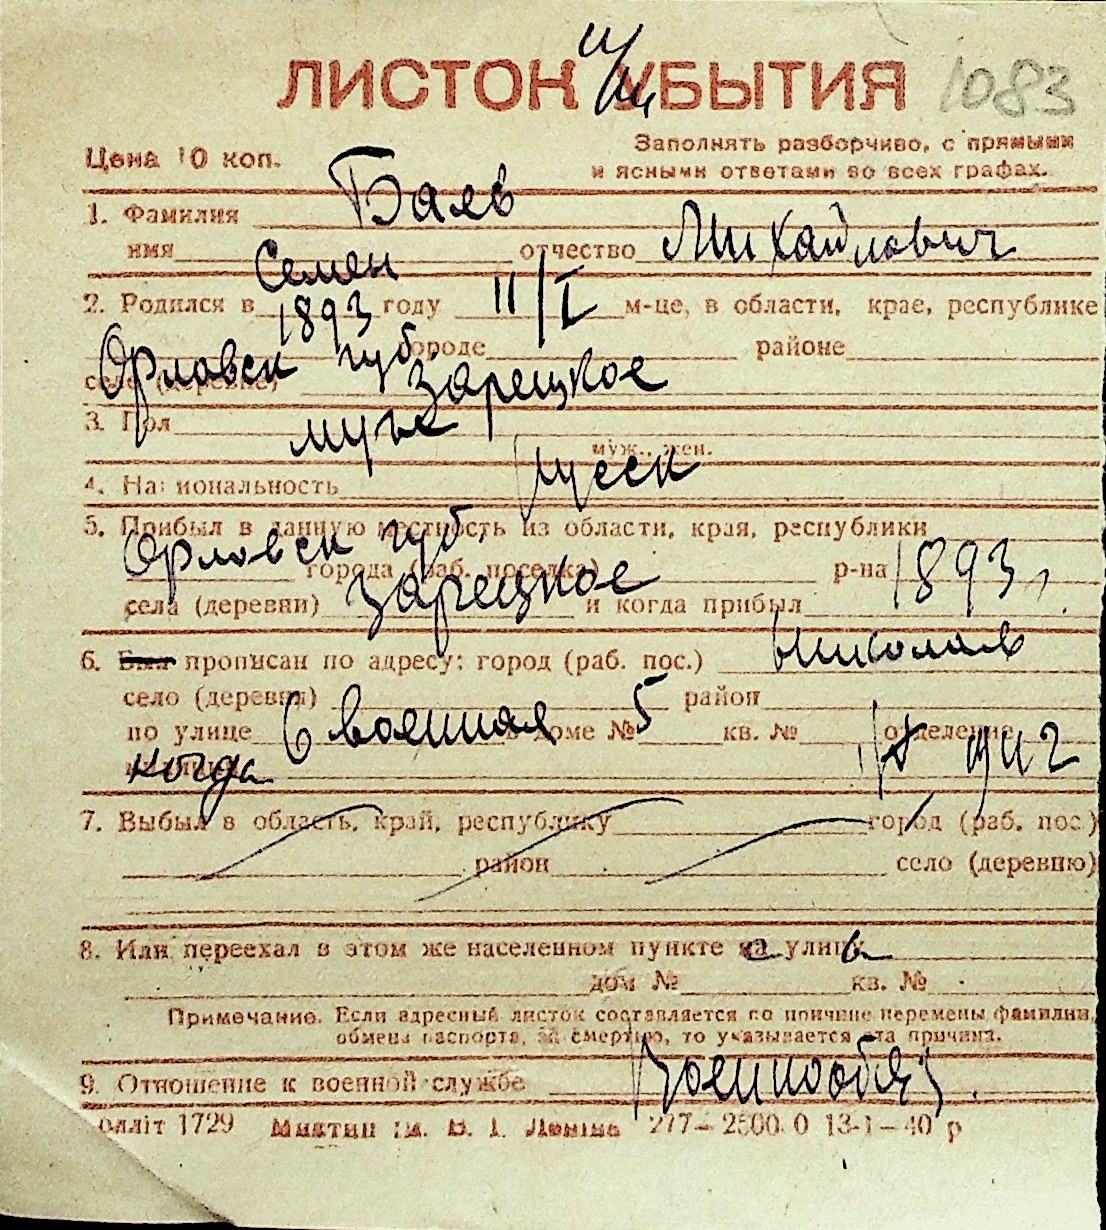 ЛИСТОК УБЫТИЯ 1083
Цена 10 коп.
Заполнять разборчиво, с прямыми
и ясными ответами во всех графах.
1. Фамилия Баяв
имя Семен отчество Михайлович
2. Родился в 1893 году 11/I м-це, в области, крае, республике
Орловск губ. городе районе
селе (деревне) Зарецкое
3. Пол муж
муж., жен.
4. Национальность русск
5. Прибыл в данную местность из области, края, республики
Орловск губ. города (раб. поселка) р-на
села (деревни) Зарецкое и когда прибыл 1893 г.
6. Был прописан по адресу: город (раб. пос.) Николаев
село (деревня) район
по улице 6 военная в доме № 5 кв. № отделение
когда
7. Выбыл в область, край, республику город (раб. пос.)
район село (деревню)
8. Или переехал в этом же населенном пункте на улицу
дом № кв. №
Примечание. Если адресный листок составляется по причине перемены фамилии,
обмена паспорта, за смертью, то указывается эта причина.
9. Отношение к военной службе Военнообяз.
олліт 1729 277—2500.0 13-1—40 р